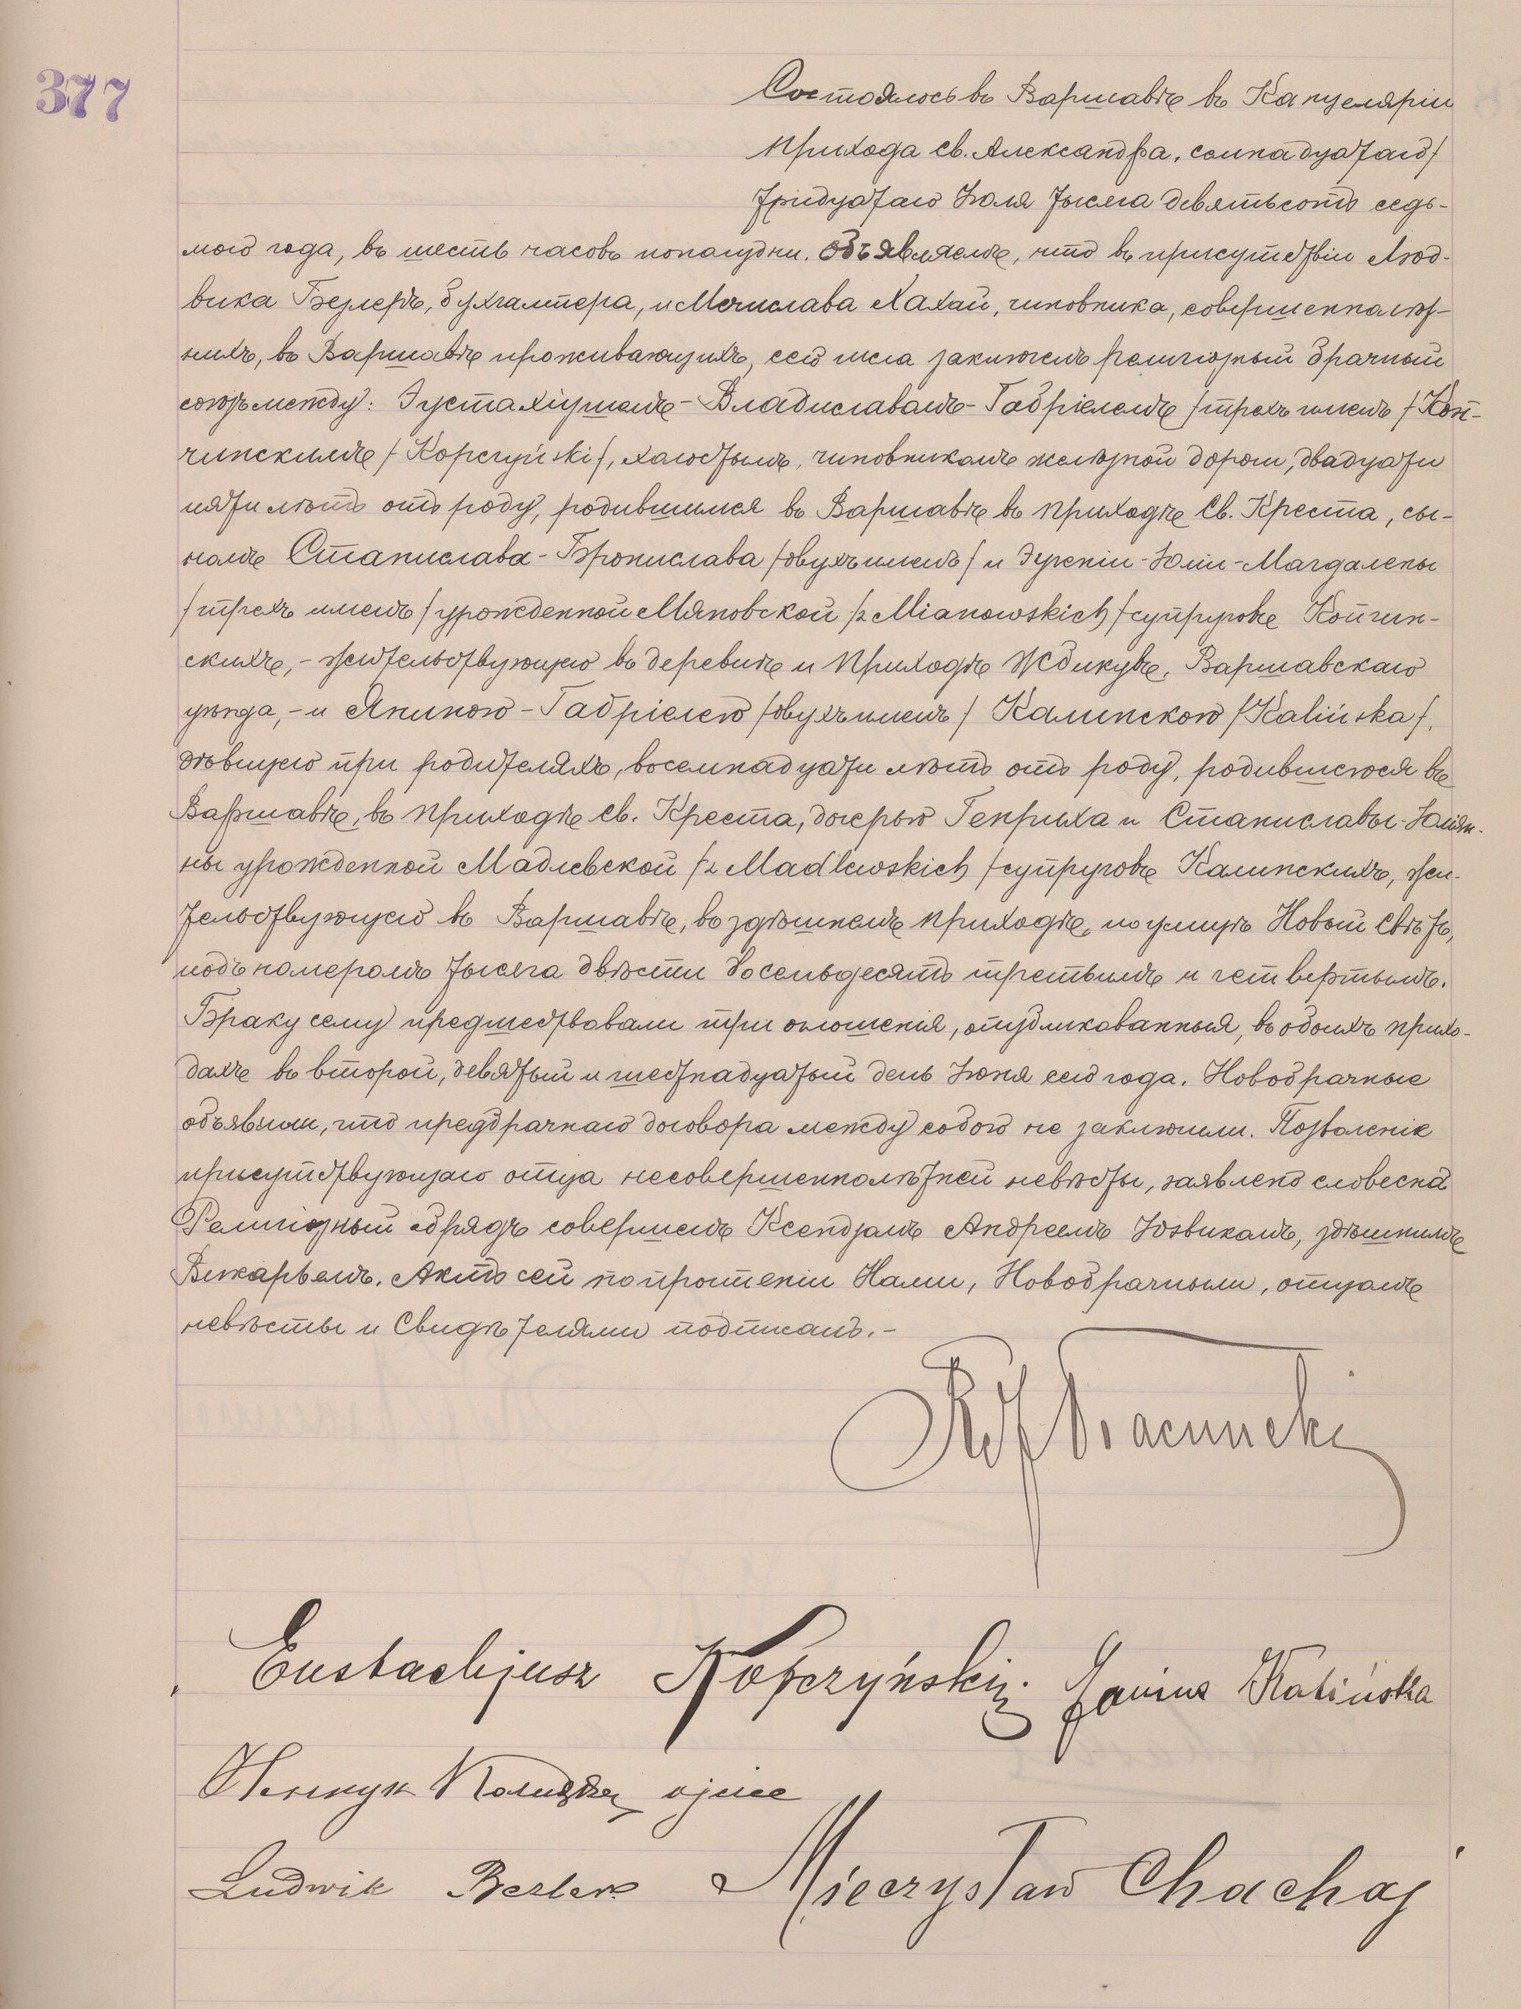 377
Состоялось въ Варшавѣ въ Канцеляріи
прихода св. Александра, семнадцатаго/
тридцатаго Іюля тысяча девятьсотъ седь-
мого года, въ шесть часовъ пополудни. Объявляемъ, что въ присутствіи Люд-
вика Безлеръ, бухгалтера, и Мечислава Хахай, чиновника, совершеннолѣт-
нихъ, въ Варшавѣ проживающихъ, сего числа заключенъ религіозный брачный
союзъ между: Эустахіушемъ-Владиславомъ-Габріелемъ /трехъ именъ/ Коп-
чинскимъ /Kopczyński/, холостымъ, чиновникомъ желѣзной дороги, двадцати
пяти лѣтъ отъ роду, родившимся въ Варшавѣ въ приходѣ Св. Креста, сы-
номъ Станислава-Бронислава /двухъ именъ/ и Эугеніи-Юліи-Магдалены
/трехъ именъ/ урожденной Мяновской /z Mianowskich/ супруговъ Копчин-
скихъ,- жительствующаго въ деревнѣ и приходѣ Жбикувъ, Варшавскаго
уѣзда,- и Яниною-Габріелею /двухъ именъ/ Калинскою /Kalińska/,
дѣвицею при родителяхъ, восемнадцати лѣтъ отъ роду, родившеюся въ
Варшавѣ, въ приходѣ св. Креста, дочерью Генриха и Станиславы-Юліян-
ны урожденной Мадлевской /z Madlewskich/ супруговъ Калинскихъ, жи-
тельствующею въ Варшавѣ, въ здѣшнемъ приходѣ, по улицѣ Новый Свѣтъ,
подъ номеромъ тысяча двѣсти восемьдесятъ третьимъ и четвертымъ.
Браку сему предшествовали три оглашенія, опубликованныя, въ обоихъ прихо-
дахъ въ второй, девятый и шестнадцатый день Іюня сего года. Новобрачные
объявили, что предбрачнаго договора между собою не заключили. Позволеніе
присутствующаго отца несовершеннолѣтней невѣсты, заявлено словесно
Религіозный обрядъ совершенъ Ксендзомъ Андреемъ Юзвикомъ, здѣшнимъ
Викарьемъ. Актъ сей по прочтеніи Нами, Новобрачными, отцомъ
невѣсты и Свидѣтелями подписанъ.-
Eustachjusz Kopczyński Janina Kalińska
Henryk Kaliński ojciec
Ludwik Bezler Mieczysław Chachaj